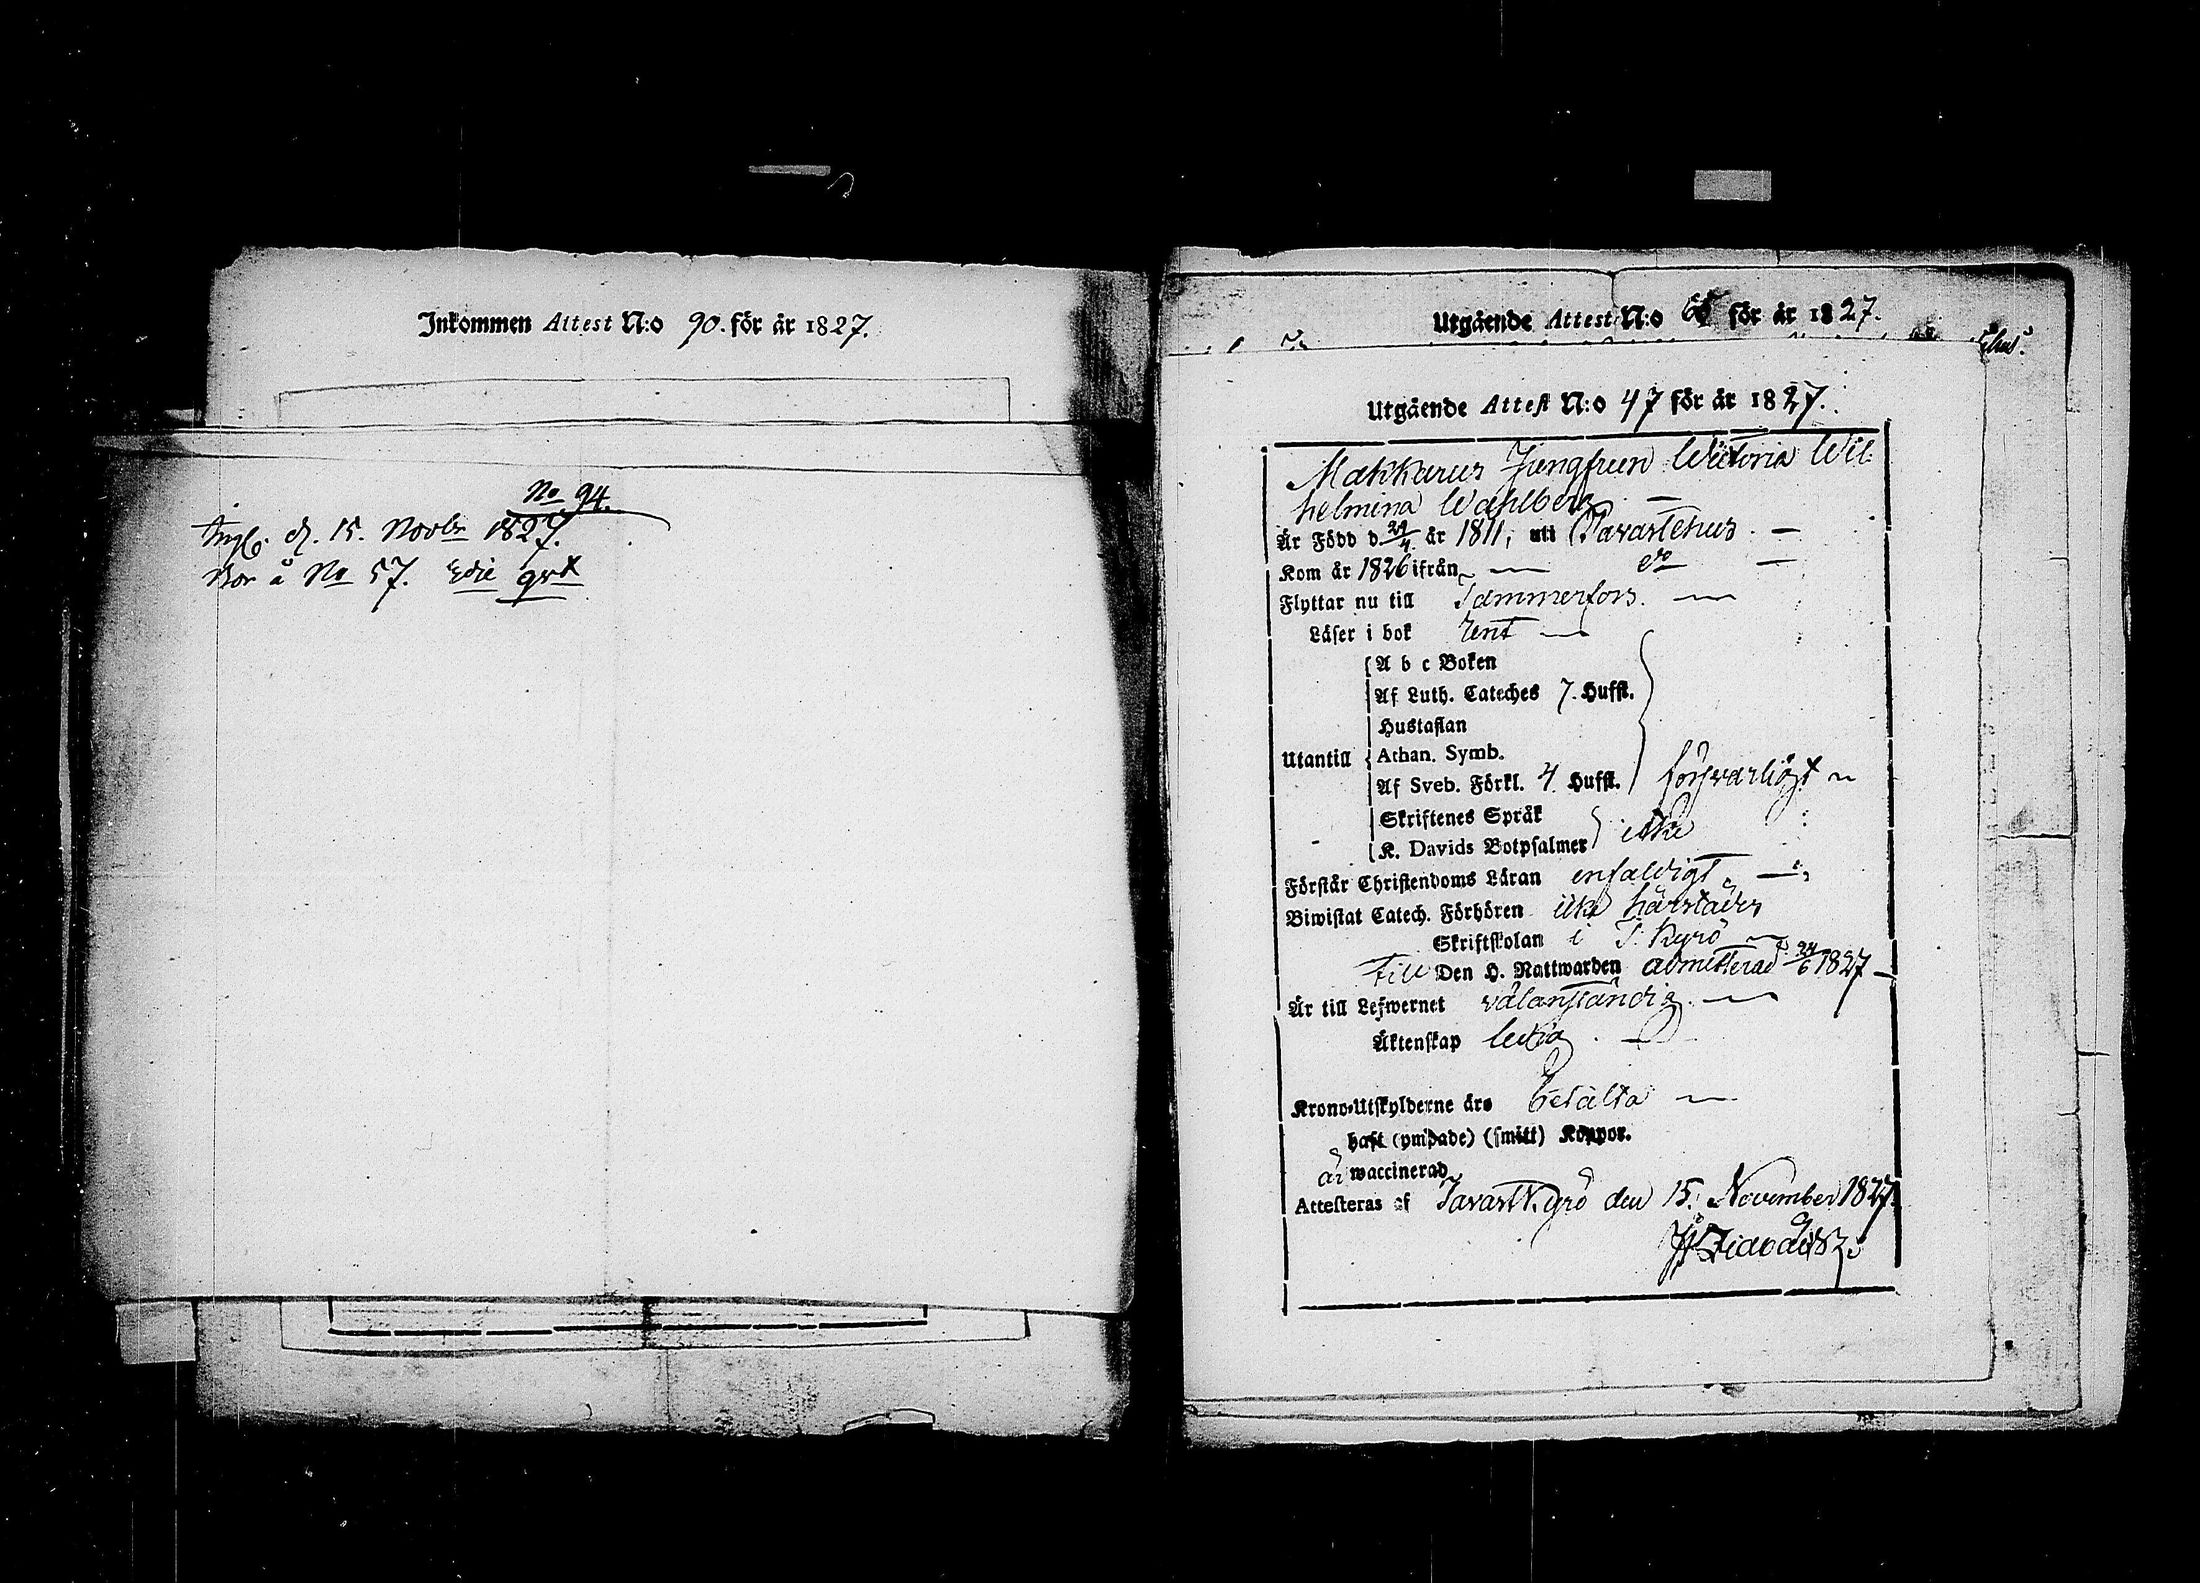 Inkommen Attest N:o 90. för år 1827.
No 94.
d. 15. Novbr 1827.
Bor å No 57.
Utgående Attest N:o 65 för år 1827.
Utgående Attest N:o 47 för år 1827.
Makkarus Jungfrun Victoria Wil-
helmina Wahlberg. —
Är Född d. 24/4 år 1811, uti Tavastehus. —
Kom år 1826 ifrån — do —
Flyttar nu till Tammerfors. —
Läser i bok rent —
A b c Boken
Af Luth. Cateches 7. Hufst.
Hustaflan
Utantill Athan. Symb.
Af Sveb. Förkl. 4 Hufst. försvarligt
Skriftenes Språk
K. Davids Botpsalmer icke
Förstår Christendoms Läran enfaldigt. —
Biwistat Catech. Förhören icke härstädes
Skriftskolan i T. Kyrö
till Den H. Nattwarden admitterad d. 24/6 1827 —
Är till Lefwernet välanständig. —
Äktenskap ledig. —
Krono-Utskylderne äro betalta —
haft (ympade) (smitt) Koppor.
är waccinerad
Attesteras af Tavast Kyrö den 15. November 1827.